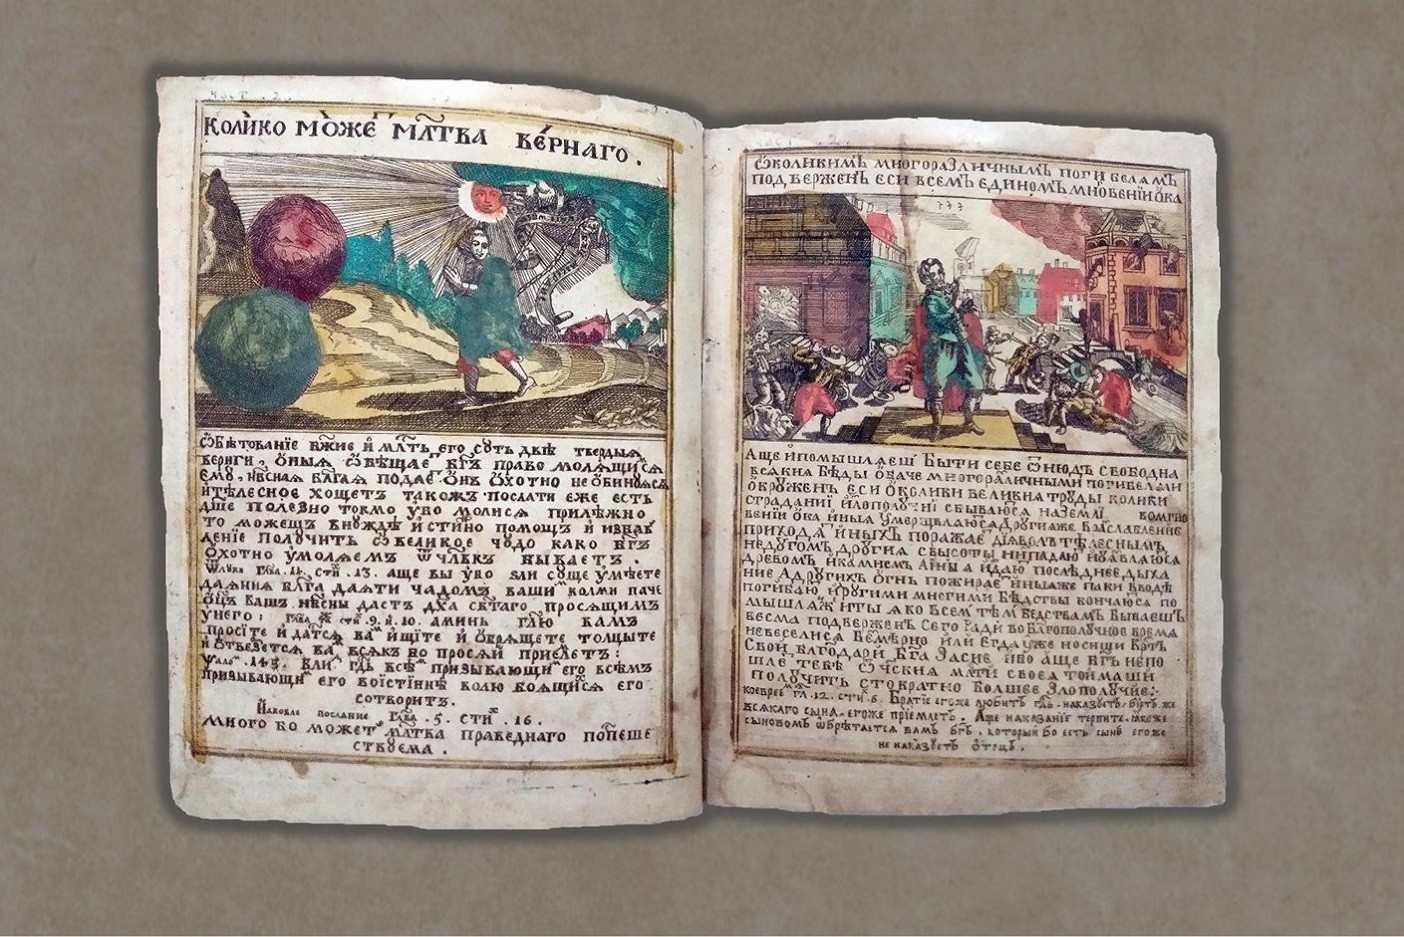 Коли́ко мо́же мл҃тва ве́рнаго.
Ѿбѣтованїе бж҃ие и мл҃ть его суть двѣ твердыѧ
вериги, ѿныѧ ѿвѣщае бг҃ъ право молѧщисѧ
ему, нб҃снаѧ благаѧ подае ѻнъ ѡхотно необинꙋѧсѧ
итѣлесное хощетъ такожъ послати еже есть
дш҃е полезно токмо ѹво молисѧ прилѣжно
то можешъ внѹждѣ истинно помощъ и избав
ленїе получить ѽ великое чудо како бг҃ъ
ѡхотно умолѧемъ ѿ члв҃къ бываетъ.
Ѿлуки гл҃ва .11. стиⷯ .13. аще вы ѹво ѕли суще умѣете
даѧния бл҃га даѧти чадомъ ваши колми паче
ѻц҃ъ вашъ нб҃сны дастъ дх҃а свѧтаго просѧщимъ
унего: гл҃ва стиⷯ .9. и .10. аминь гл҃ю вамъ
просите и датсѧ ва ищите и ѡбрѧщете толцыте
и ѿверзетсѧ ва всѧкъ во просѧй приемлетъ:
близ гд҃ь всѣ призывающи его всѣмъ
призывающи его воїстиннѣ волю боѧщисѧ его
сотворитъ.
Иаковле послание гл҃ва .5. стиⷯ .16.
Много бо может мл҃тва праведнаго поспеше
ствуема.
Ѽколикимъ многоразличнымъ погибелѧмъ
подверженъ еси всемъ единомъ мгновенїи ока
Аще ипомышлѧеш быти себе ѿнюдъ свободна
всѧкиѧ бѣды ѻбаче многоразличными погибельми
ѻкруженъ еси ѽколики великиѧ труды колики
страданїи излополучїи сбываюсѧ наземли вомгно
венїи ока иныѧ умерщвлѧюсѧ другиѧже вразслабленїе
приходѧ иныхъ поражае дїѧволъ тѣлеснымъ
недугомъ другиѧ свысоты нипадаю иуѧвлѧюсѧ
древомъ икамнемъ последнее дыха
ние Адругихъ огнь пожирае иныѧже паки вводѣ
погибаю идругими многими бѣдствы кончаюсѧ по
мышлѧж иты ѧко всем тѣм бедствамъ бываешъ
весма подверженъ Сего ради во бл҃гополучное времѧ
невеселисѧ безмерно или егда уже носиши крт҃ъ
Свой благодари бг҃а Засие ибо аще бг҃ъ непо
шле тебѣ ѿческиѧ мл҃ти своеѧ тоимаши
получить стократно болшее Злополучие:
коевреѡⷨ гл҃. 12. стиⷯ. 6. Братїе егоже любитъ гд҃ь наказуетъ биетъ же
всѧкаго сына егоже прїемлетъ. Аще наказанїе терпите ꙗкоже
сыновомъ ѡбрѣтаетсѧ вамъ бг҃ъ. который бо есть сынъ егоже
не наказуетъ отецъ.